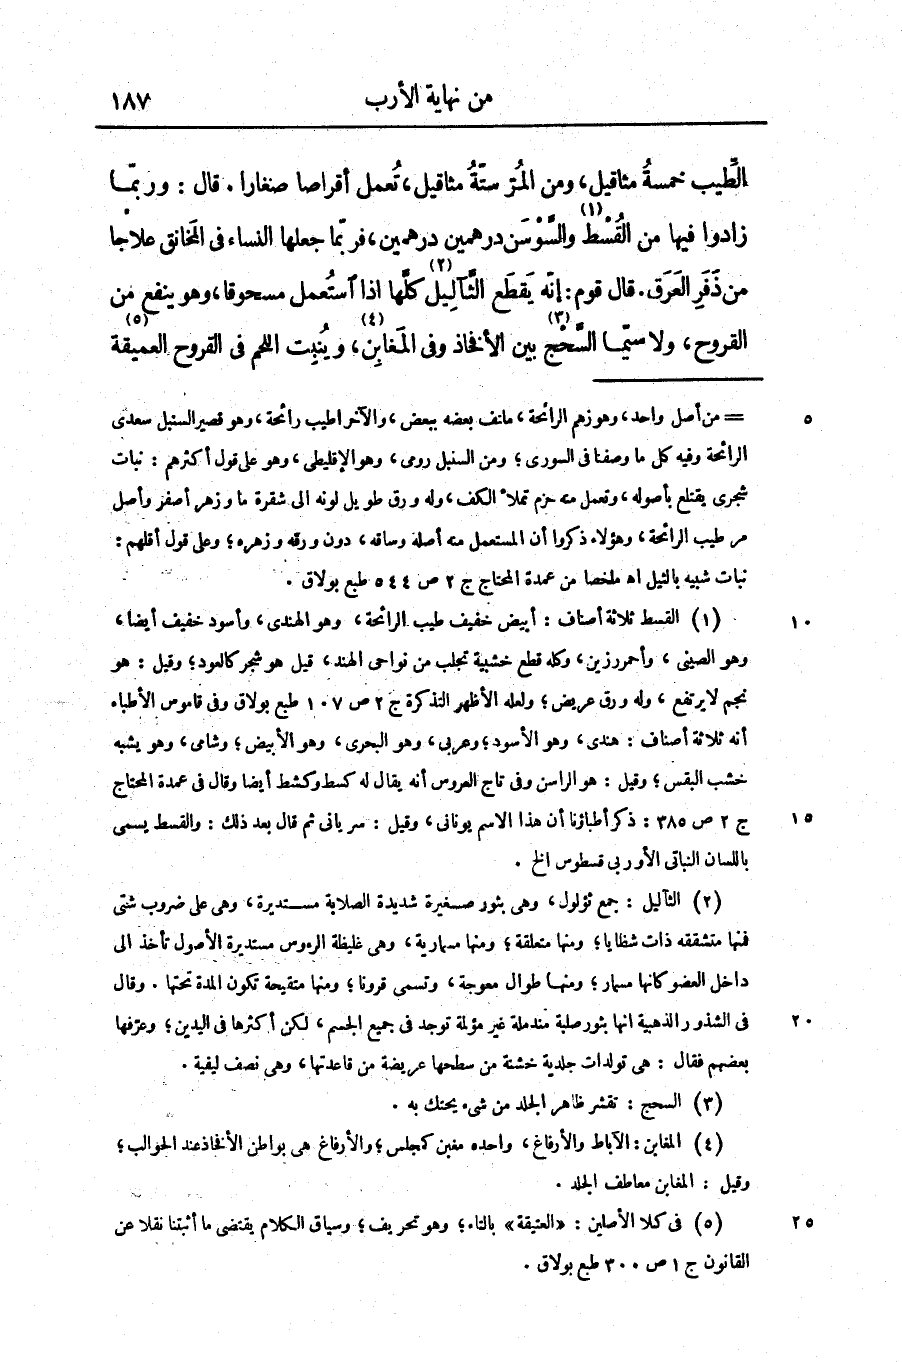 من نهاية الأرب ١٨٧
الطِّيب خمسةُ مثاقيل، ومن المُرّ ستّةُ مثاقيل، تُعمل أقراصا صغارا. قال: وربّما
زادوا فيها من القُسْط (١) والسَّوْسَن درهمين درهمين، فربّما جعلها النساء فى المَخانق علاجا
من ذَفَرِ العَرَق. قال قوم: إنّه يَقطَع الثَّآلِيل (٢) كلَّها اذا ٱستُعمل مسحوقا، وهو ينفع من
القروح، ولا سيّما السَّحْج (٣) بين الأفخاذ وفى المَغابِن (٤)، ويُنبِت اللحم فى القروح العميقة (٥)
٥ = من أصل واحد، وهو زهم الرائحة، مانف بعضه ببعض، والآخر اطيب رائحة، وهو قصير السنبل سعدى
الرائحة وفيه كل ما وصفنا فى السورى؛ ومن السنبل رومى، وهو الإقليطى، وهو على قول أكثرهم: نبات
شجرى يقتلع بأصوله، وتعمل منه حزم تملأ الكف، وله ورق طويل لونه الى شقرة ما وزهر أصفر وأصل
مر طيب الرائحة، وهؤلاء ذكروا أن المستعمل منه أصله وساقه، دون ورقه وزهره؛ وعلى قول أقلهم:
نبات شبيه بالثيل اه ملخصا من عمدة المحتاج ج ٢ ص ٥٤٤ طبع بولاق.
١٠ (١) القسط ثلاثة أصناف: أبيض خفيف طيب الرائحة، وهو الهندى، وأسود خفيف أيضا،
وهو الصينى، وأحمر رزين، وكله قطع خشبية تجلب من نواحى الهند، قيل هو شجر كالعود؛ وقيل: هو
نجم لا يرتفع، وله ورق عريض؛ ولعله الأظهر التذكرة ج ٢ ص ١٠٧ طبع بولاق وفى قاموس الأطباء
أنه ثلاثة أصناف: هندى، وهو الأسود؛ وعربى، وهو البحرى، وهو الأبيض؛ وشامى، وهو يشبه
خشب البقس؛ وقيل: هو الراسن وفى تاج العروس أنه يقال له كسط وكشط أيضا وقال فى عمدة المحتاج
١٥ ج ٢ ص ٣٨٥: ذكر أطباؤنا أن هذا الاسم يونانى، وقيل: سريانى ثم قال بعد ذلك: والقسط يسمى
باللسان النباتى الأوربى قسطوس الخ.
(٢) الثآليل: جمع ثؤلول، وهى بثور صغيرة شديدة الصلابة مستديرة، وهى على ضروب شتى
فمنها متشققه ذات شظايا؛ ومنها متعلقة؛ ومنها مسمارية، وهى غليظة الرءوس مستديرة الأصول تأخذ الى
داخل العضو كانها مسمار؛ ومنها طوال معوجة، وتسمى قرونا؛ ومنها متقيحة تكون المدة تحتها. وقال
٢٠ فى الشذور الذهبية انها بثور صلبة مندملة غير مؤلمة توجد فى جميع الجسم، لكن أكثرها فى اليدين؛ وعرّفها
بعضهم فقال: هى تولدات جلدية خشنة من سطحها عريضة من قاعدتها، وهى نصف ليفية.
(٣) السحج: تقشر ظاهر الجلد من شىء يحتك به.
(٤) المغابن: الآباط والأرفاغ، واحده مغبن كمجلس؛ والأرفاغ هى بواطن الأنخاذ عند الحوالب؛
وقيل: المغابن معاطف الجلد.
٢٥ (٥) فى كلا الأصلين: «العتيقة» بالتاء؛ وهو تحريف؛ وسياق الكلام يقتضى ما أثبتنا نقلا عن
القانون ج ١ ص ٣٠٠ طبع بولاق.